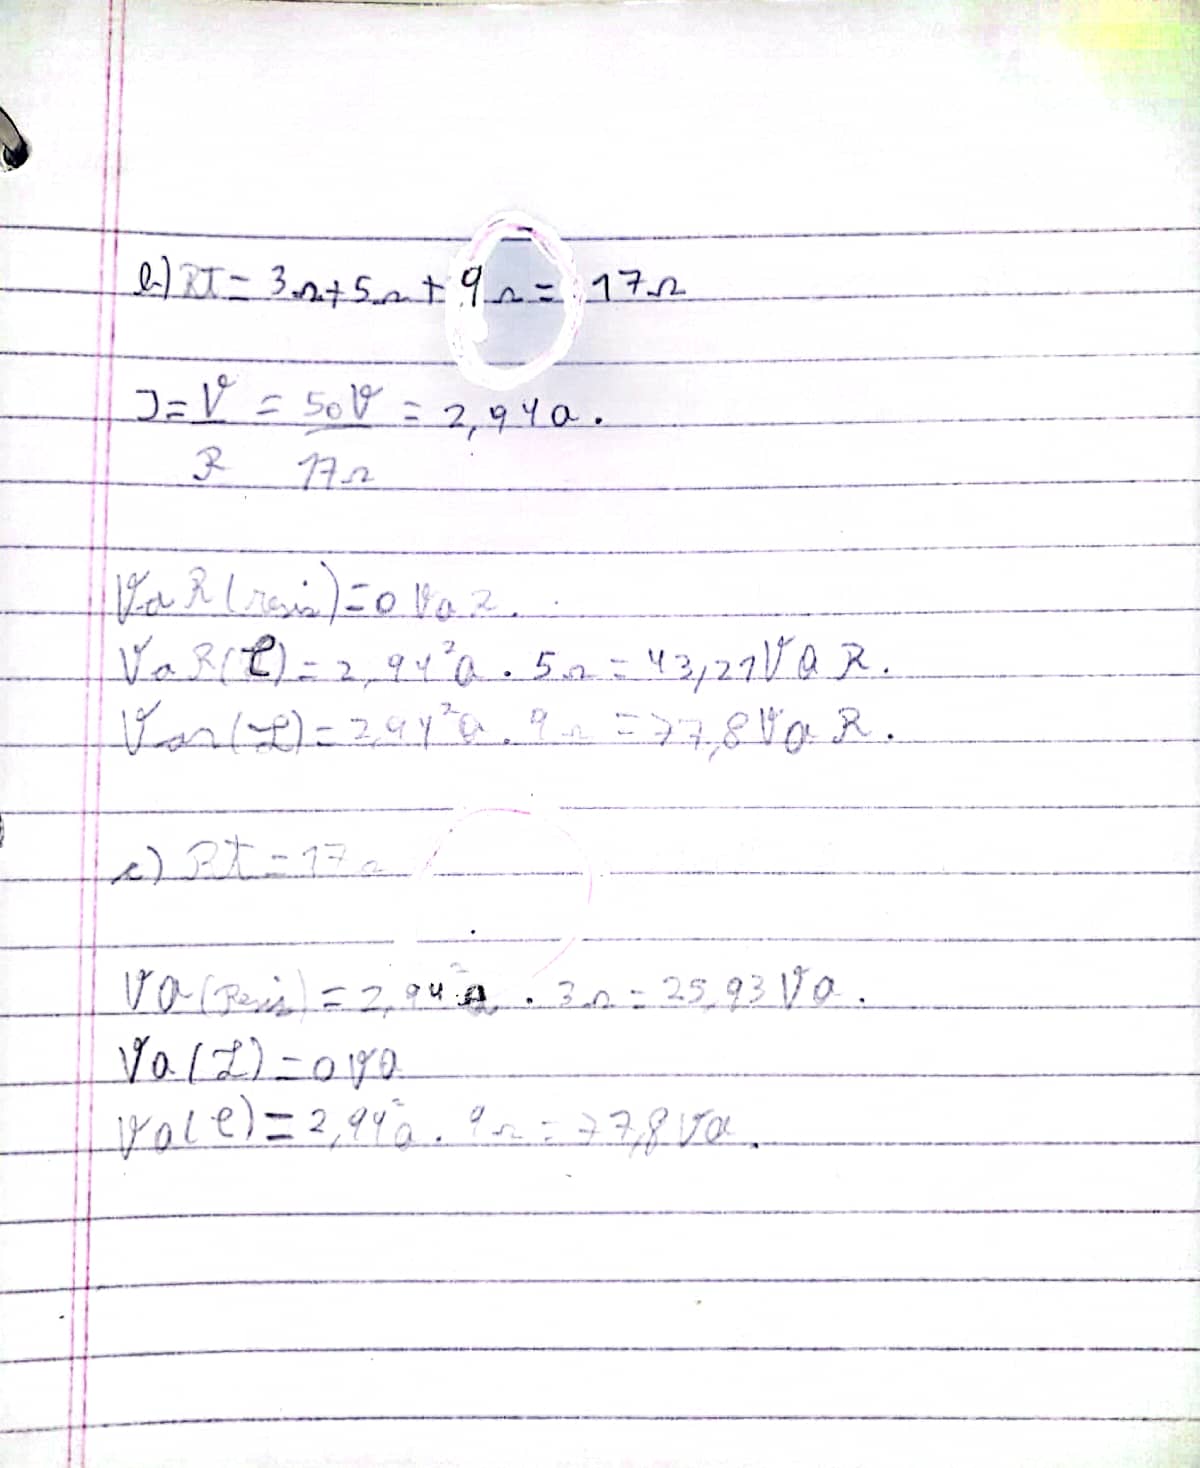 b) RT = 3Ω+5Ω+9Ω = 17Ω
I = V = 50V = 2,94a.
R 17Ω
VaR (resis) = 0 VaR.
VaR(C) = 2,94²a . 5Ω = 43,21VaR.
Var(L) = 2,94²a . 9Ω = 77,8 VaR.
c) Rt = 17Ω
Va(Resis) = 2,94²a . 3Ω = 25,93 Va.
Va(L) = 0 Va
Va(C) = 2,94²a . 9Ω = 77,8 Va.